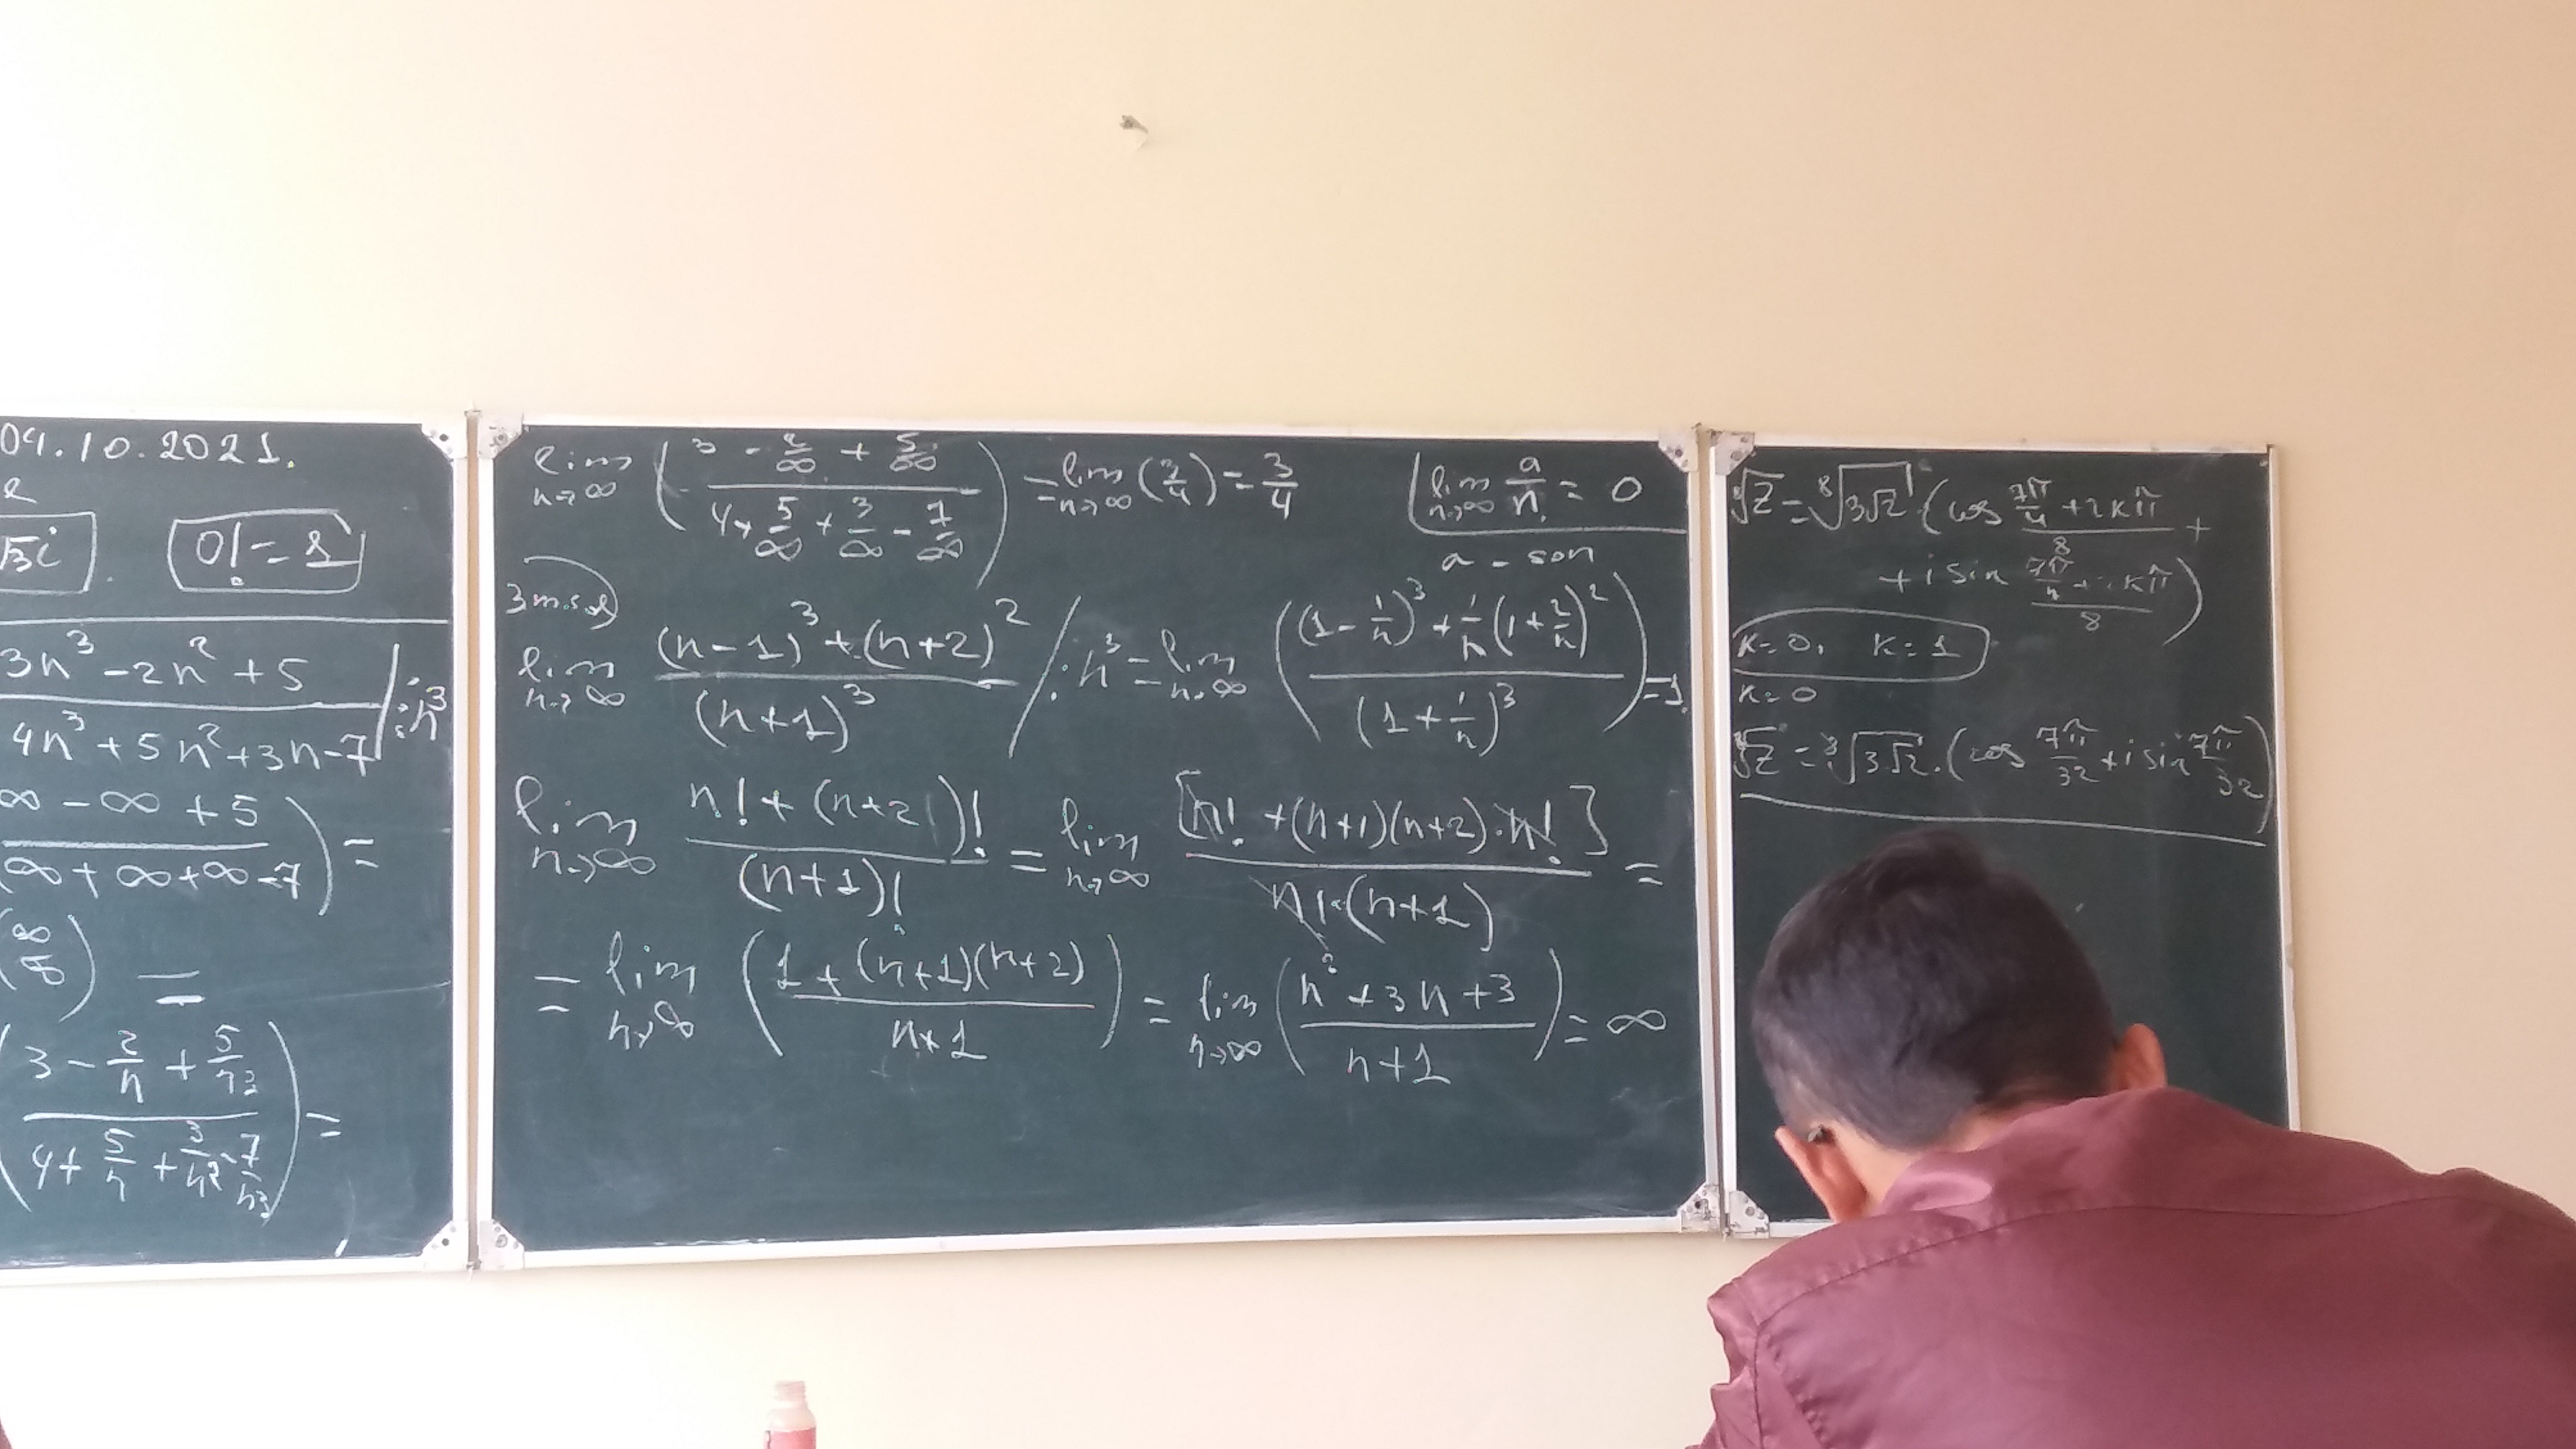 04.10.2021.
√3i . 0! = 1
3n³ - 2n² + 5 / 4n³ + 5n² + 3n - 7 | : n³
∞ - ∞ + 5 / ∞ + ∞ + ∞ - 7 ) =
(∞/∞) =
(3 - 2/n + 5/n³ / 4 + 5/n + 3/n² - 7/n³) =
lim n→∞ (3 - 2/∞ + 5/∞ / 4 + 5/∞ + 3/∞ - 7/∞) = lim n→∞ (3/4) = 3/4
lim n→∞ a/n = 0
a - son
lim n→∞ (n-1)³ + (n+2)² / (n+1)³ / : n³ = lim n→∞ ((1 - 1/n)³ + 1/n (1 + 2/n)² / (1 + 1/n)³) = 1.
lim n→∞ n! + (n+2)! / (n+1)! = lim n→∞ [n! + (n+1)(n+2)·n!] / n!·(n+1) =
= lim n→∞ (1 + (n+1)(n+2) / n+1) = lim n→∞ (n² + 3n + 3 / n+1) = ∞
⁸√z = ⁸√3√2 · (cos 7π/4 + 2kπ / 8 +
+ i sin 7π/4 + 2kπ / 8)
k=0, k=1
k=0
⁸√z = ⁸√3√2 · (cos 7π/32 + i sin 7π/32)